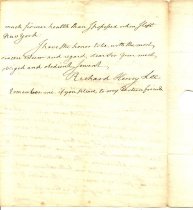 much firmer health than I possessed when I left
New York.
I have the honor to be, with the most
sincere esteem and regard, dear Sir your most
obliged and obedient servant
Richard Henry Lee
Remember me if you please to my Eastern friends